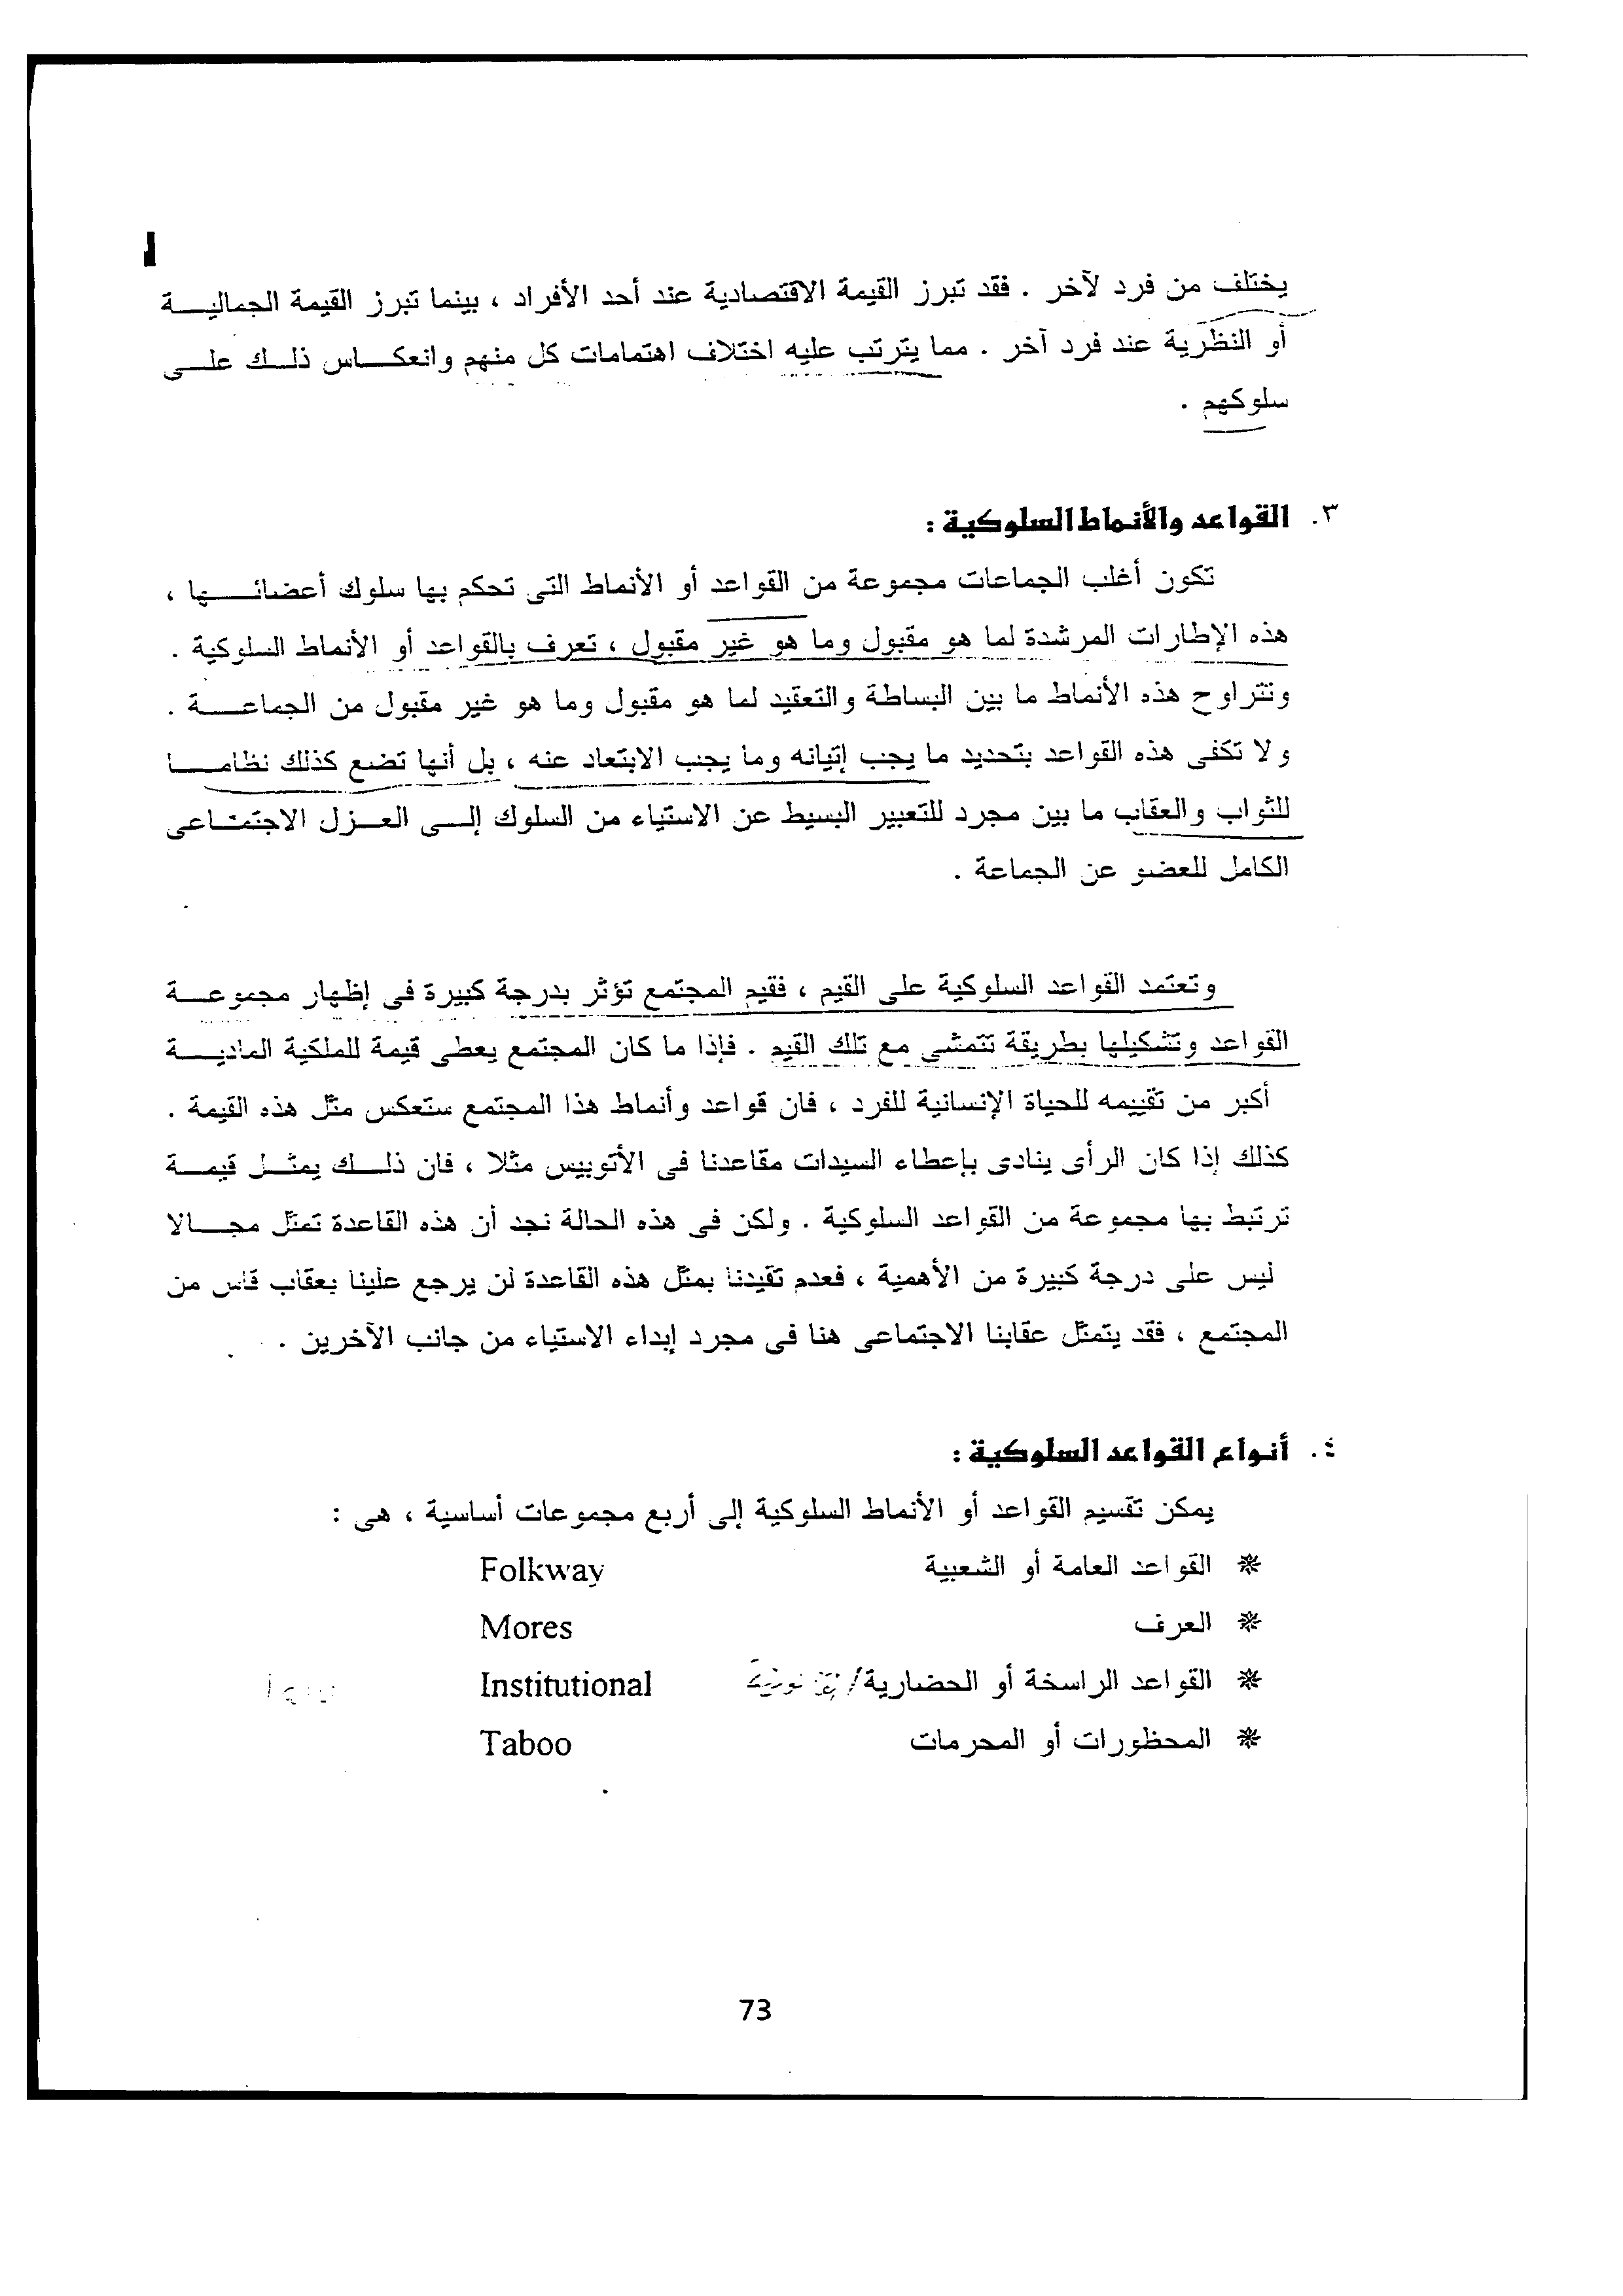 يختلف من فرد لآخر . فقد تبرز القيمة الاقتصادية عند أحد الأفراد ، بينما تبرز القيمة الجمالية
أو النظرية عند فرد آخر . مما يترتب عليه اختلاف اهتمامات كل منهم وانعكاس ذلك على
سلوكهم .
٣. القواعد والأنماط السلوكية :
تكون أغلب الجماعات مجموعة من القواعد أو الأنماط التى تحكم بها سلوك أعضائها ،
هذه الإطارات المرشدة لما هو مقبول وما هو غير مقبول ، تعرف بالقواعد أو الأنماط السلوكية .
وتتراوح هذه الأنماط ما بين البساطة والتعقيد لما هو مقبول وما هو غير مقبول من الجماعة .
ولا تكفى هذه القواعد بتحديد ما يجب إتيانه وما يجب الابتعاد عنه ، بل أنها تضع كذلك نظاما
للثواب والعقاب ما بين مجرد للتعبير البسيط عن الاستياء من السلوك إلى العزل الاجتماعى
الكامل للعضو عن الجماعة .
وتعتمد القواعد السلوكية على القيم ، فقيم المجتمع تؤثر بدرجة كبيرة فى إظهار مجموعة
القواعد وتشكيلها بطريقة تتمشى مع تلك القيم . فإذا ما كان المجتمع يعطى قيمة للملكية المادية
أكبر من تقييمه للحياة الإنسانية للفرد ، فان قواعد وأنماط هذا المجتمع ستعكس مثل هذه القيمة .
كذلك إذا كان الرأى ينادى بإعطاء السيدات مقاعدنا فى الأتوبيس مثلا ، فان ذلك يمثل قيمة
ترتبط بها مجموعة من القواعد السلوكية . ولكن فى هذه الحالة نجد أن هذه القاعدة تمثل مجالا
ليس على درجة كبيرة من الأهمية ، فعدم تقيدنا بمثل هذه القاعدة لن يرجع علينا بعقاب قاس من
المجتمع ، فقد يتمثل عقابنا الاجتماعى هنا فى مجرد إبداء الاستياء من جانب الآخرين .
٤. أنواع القواعد السلوكية :
يمكن تقسيم القواعد أو الأنماط السلوكية إلى أربع مجموعات أساسية ، هى :
* القواعد العامة أو الشعبية Folkway
* العرف Mores
* القواعد الراسخة أو الحضارية/ Institutional
* المحظورات أو المحرمات Taboo
73